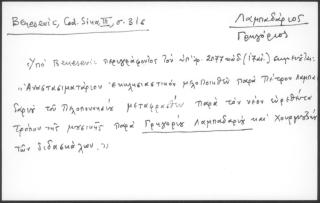 Beneševič, Cod. Sina III, σ. 316
Λαμπαδάριος
Γρηγόριος
«Ὑπὸ Beneševič περιγράφονται τοῦ ὑπ' ἀρ. 2077 κώδ. (17αἰ.)
"Ἀναστασιματάριον ἐκκλησιαστικὸν μελοποιηθὲν παρὰ Πέτρου Λαμπα
δαρίου τοῦ Πελοποννησίου μεταφρασθὲν παρὰ τὸν νέον εὑρεθέντα
τρόπον τῆς μουσικῆς παρὰ Γρηγορίου Λαμπαδαρίου καὶ Χουρμουζίου
τῶν διδασκάλων.")